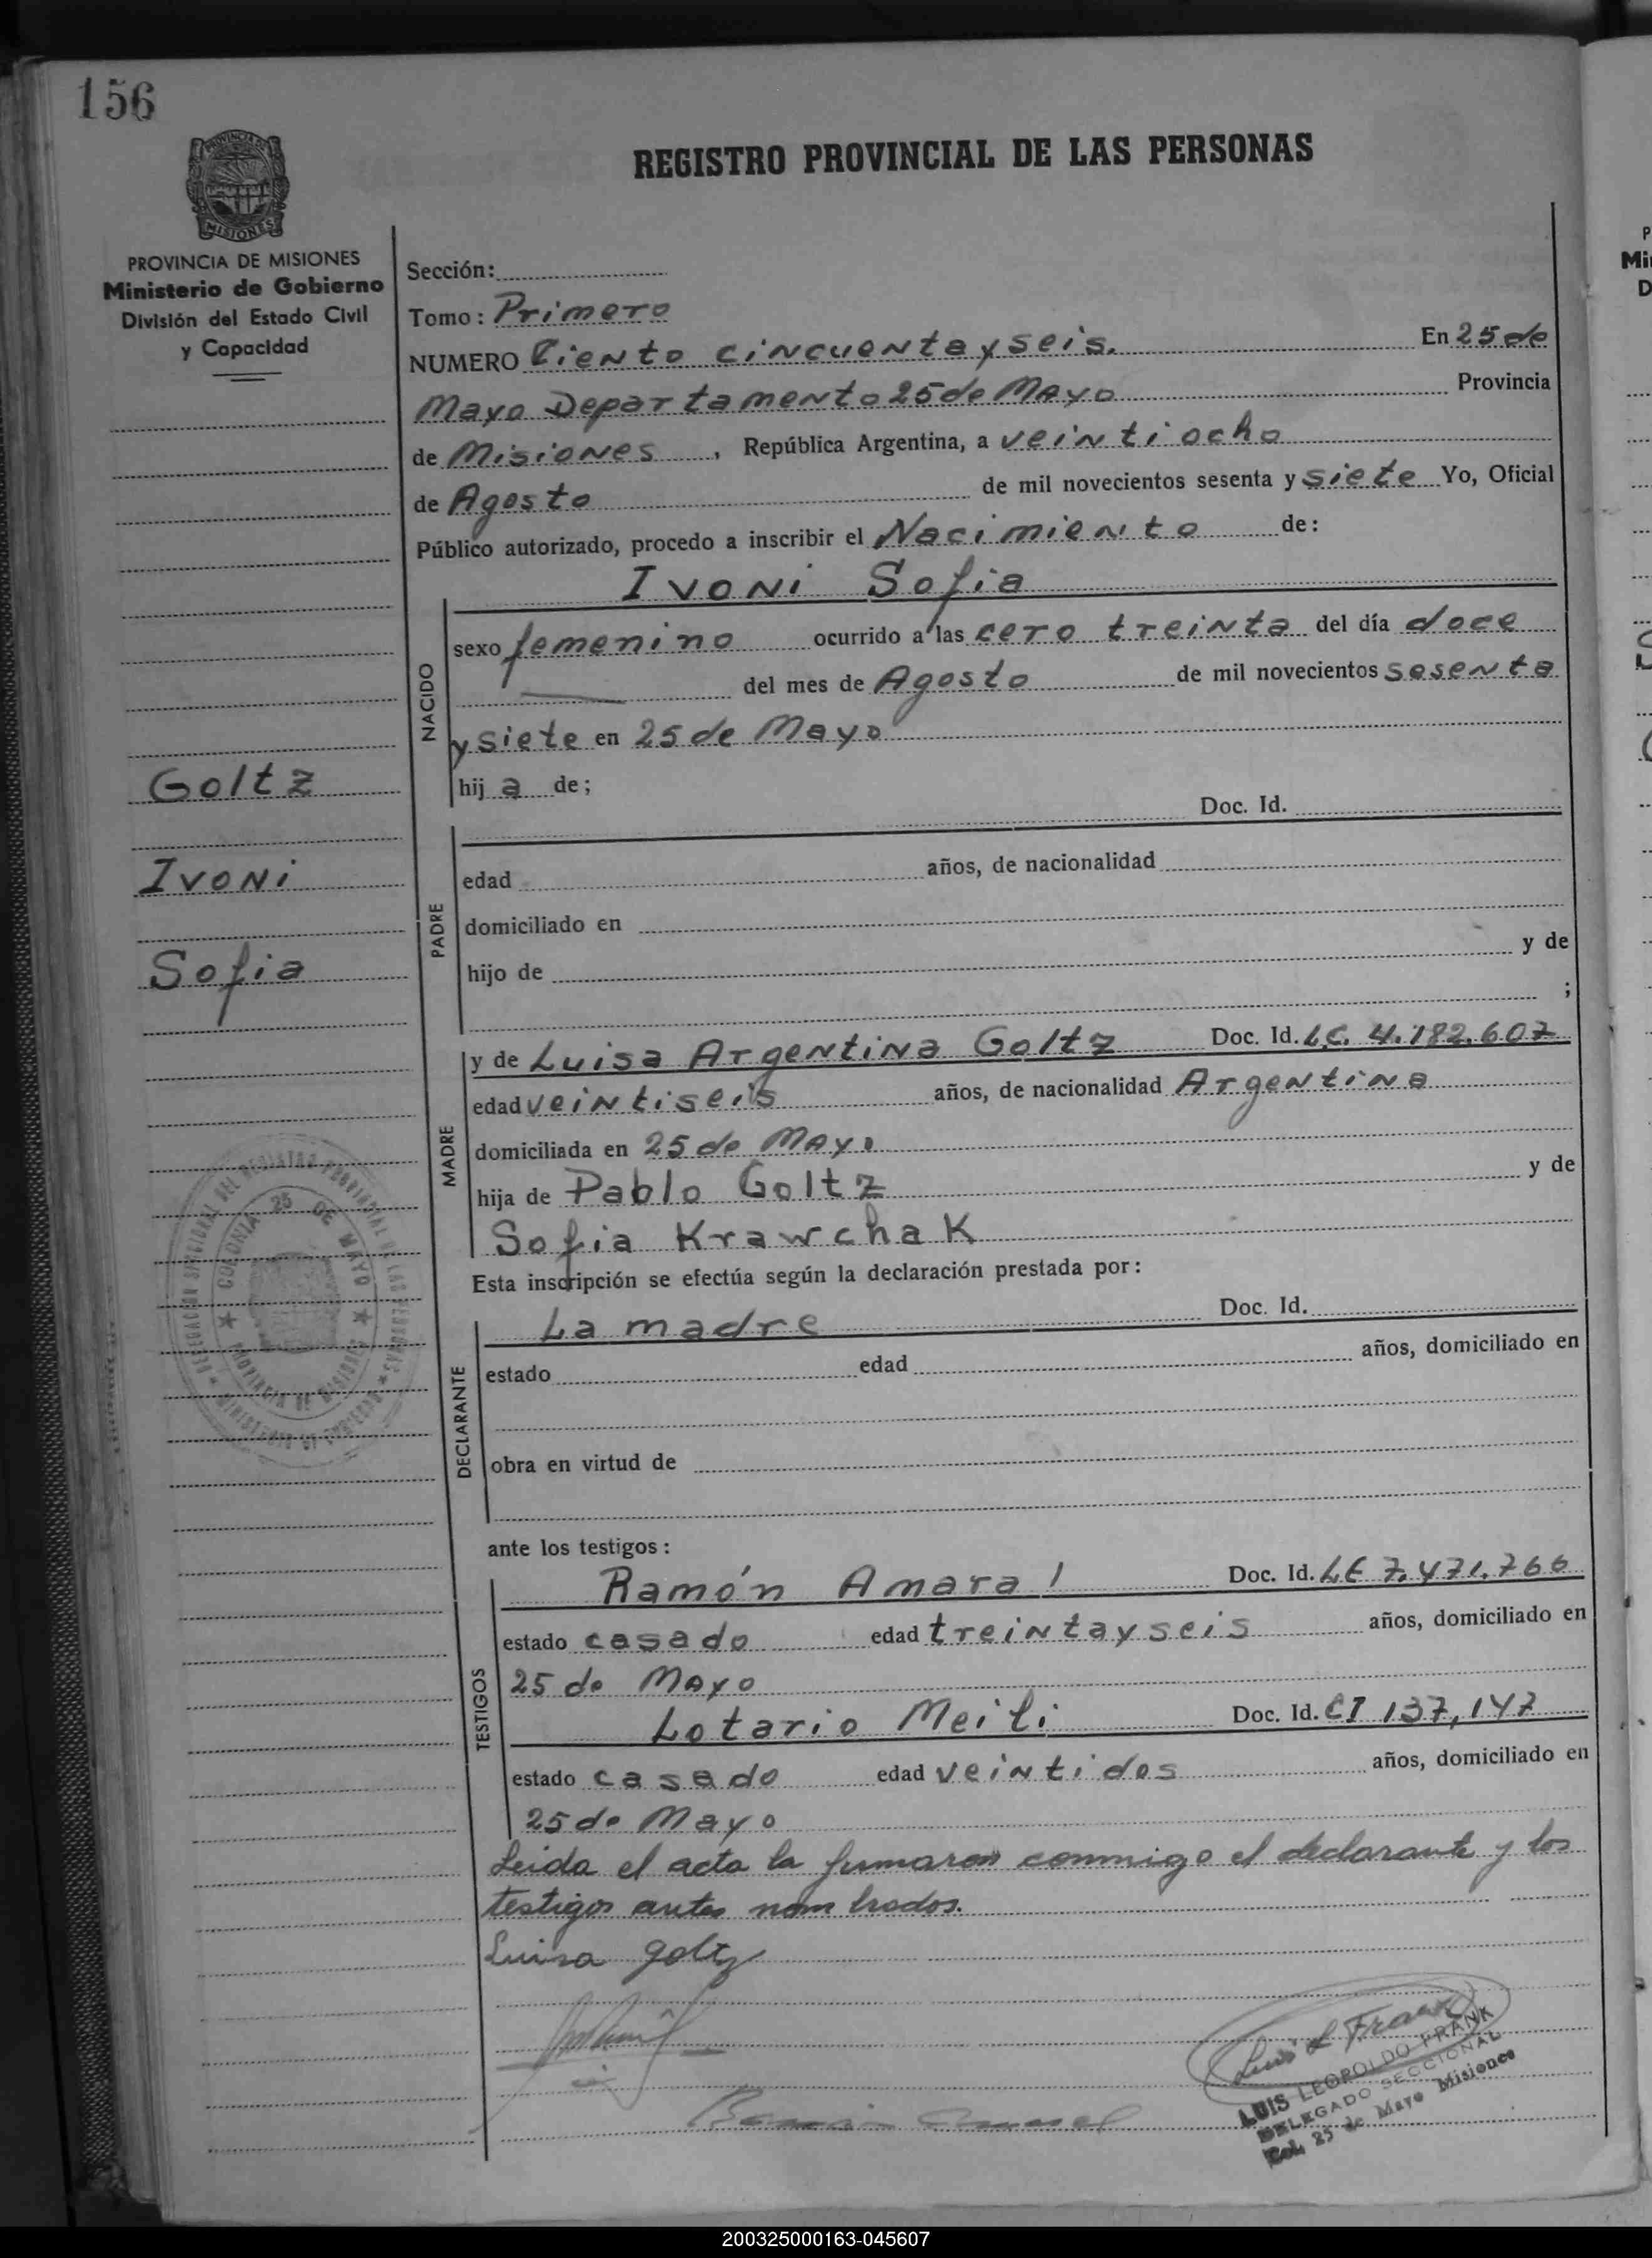 156
PROVINCIA DE
MISIONES
REGISTRO PROVINCIAL DE LAS PERSONAS
PROVINCIA DE MISIONES
Ministerio de Gobierno
División del Estado Civil
y Capacidad
Sección:
Tomo: Primero
NUMERO Ciento cincuenta y seis. En 25 de
Mayo Departamento 25 de Mayo Provincia
de Misiones, República Argentina, a veintiocho
de Agosto de mil novecientos sesenta y siete Yo, Oficial
Público autorizado, procedo a inscribir el Nacimiento de:
Ivoni Sofia
NACIDO
sexo femenino ocurrido a las cero treinta del día doce
del mes de Agosto de mil novecientos sesenta
y siete en 25 de Mayo
hij a de;
Goltz
Ivoni
Sofia
PADRE
Doc. Id.
edad años, de nacionalidad
domiciliado en
hijo de y de
;
MADRE
y de Luisa Argentina Goltz Doc. Id. LC. 4.182.607
edad veintiseis años, de nacionalidad Argentina
domiciliada en 25 de Mayo
hija de Pablo Goltz y de
Sofia Krawchak
Esta inscripción se efectúa según la declaración prestada por:
DECLARANTE
La madre Doc. Id.
estado edad años, domiciliado en
obra en virtud de
DELEGACION SECCIONAL DEL REGISTRO PROVINCIAL DE LAS PERSONAS
COLONIA 25 DE MAYO
PROVINCIA DE MISIONES
MINISTERIO DE GOBIERNO
ante los testigos:
TESTIGOS
Ramón Amaral Doc. Id. LE 7.471.766
estado casado edad treinta y seis años, domiciliado en
25 de Mayo
Lotario Meili Doc. Id. CI 137,147
estado casado edad veintidos años, domiciliado en
25 de Mayo
Leida el acta la firmaron conmigo el declarante y los
testigos antes nombrados.
Luisa Goltz
Ramón Amaral
Luis L Frank
LUIS LEOPOLDO FRANK
DELEGADO SECCIONAL
Col. 25 de Mayo Misiones
P
Mi
D
200325000163-045607